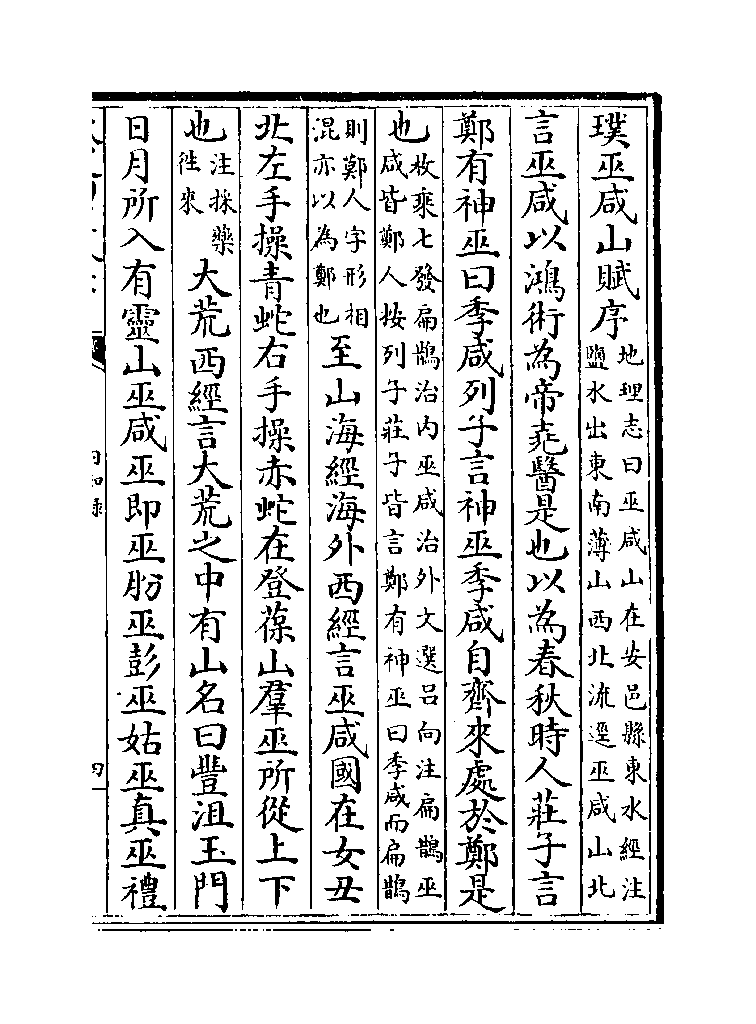 璞巫咸山賦序地理志曰巫咸山在安邑縣東水經注
鹽水出東南薄山西北流逕巫咸山北
言巫咸以鴻術為帝堯醫是也以為春秋時人莊子言
鄭有神巫曰季咸列子言神巫季咸自齊來處於鄭是
也枚乘七發扁鵲治内巫咸治外文選吕向注扁鵲巫
咸皆鄭人按列子莊子皆言鄭有神巫曰季咸而扁鵲
則鄭人字形相
混亦以為鄭也至山海經海外西經言巫咸國在女丑
北左手操青蛇右手操赤蛇在登葆山羣巫所從上下
也注採藥
徃來大荒西經言大荒之中有山名曰豐沮玉門
日月所入有靈山巫咸巫即巫肦巫彭巫姑巫真巫禮
日知錄
四